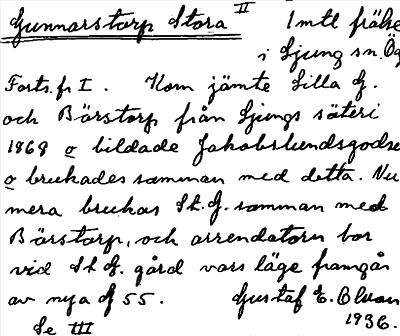 Gunnarstorp Stora II 1 mtl frälse
i Ljung sn. Ög
Forts. fr I. Kom jämte Lilla G.
och Bärstorp från Ljungs säteri
1868 o bildade Jakobslundsgodse
o brukades samman med detta. Nu
mera brukas St. G. samman med
Bärstorp, och arrendatorn bor
vid St G. gård vars läge framgår
av nya G 55. Gustaf E.
1936.
Se III